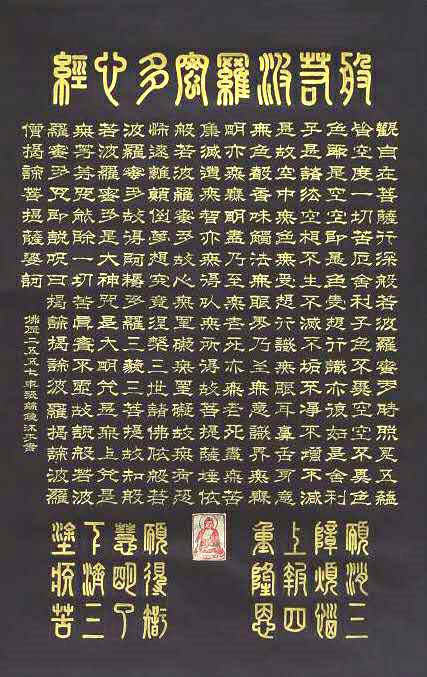 般若波羅密多心經
觀自在菩薩行深般若波羅蜜多時照見五蘊
皆空度一切苦厄舍利子色不異空空不異色
色即是空空即是色受想行識亦復如是舍利
子是諸法空相不生不滅不垢不淨不增不減
是故空中無色無受想行識無眼耳鼻舌身意
無色聲香味觸法無眼界乃至無意識界無無
明亦無無明盡乃至無老死亦無老死盡無苦
集滅道無智亦無得以無所得故菩提薩埵依
般若波羅蜜多故心無罣礙無罣礙故無有恐
怖遠離顛倒夢想究竟涅槃三世諸佛依般若
波羅蜜多故得阿耨多羅三藐三菩提故知般
若波羅蜜多是大神咒是大明咒是無上咒是
無等等咒能除一切苦真實不虛故說般若波
羅蜜多咒即說咒曰揭諦揭諦波羅揭諦波羅
僧揭諦菩提薩婆訶
佛曆二五五七年張沐手書
願消三
障煩惱
上報四
重隆恩
願得智
慧明了
下濟三
塗眾苦